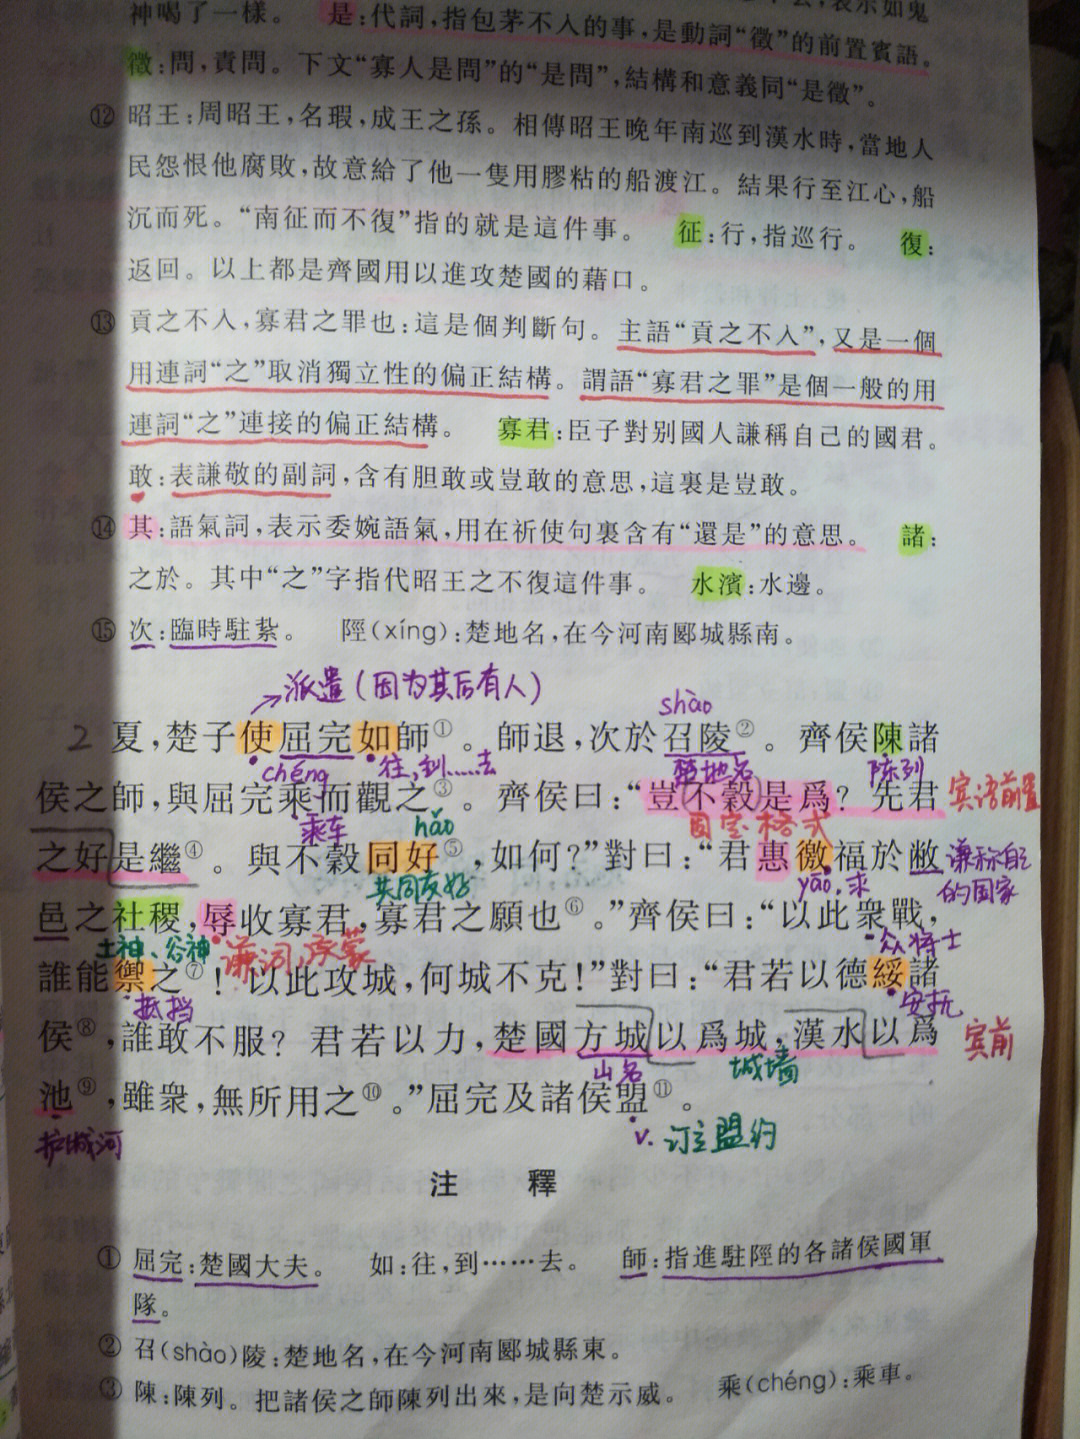 表示如鬼
神喝了一樣。 是:代詞,指包茅不入的事,是動詞“徵”的前置賓語。
徵:問,責問。下文“寡人是問”的“是問”,結構和意義同“是徵”。
⑫ 昭王:周昭王,名瑕,成王之孫。相傳昭王晚年南巡到漢水時,當地人
民怨恨他腐敗,故意給了他一隻用膠粘的船渡江。結果行至江心,船
沉而死。“南征而不復”指的就是這件事。 征:行,指巡行。 復:
返回。以上都是齊國用以進攻楚國的藉口。
⑬ 貢之不入,寡君之罪也:這是個判斷句。主語“貢之不入”,又是一個
用連詞“之”取消獨立性的偏正結構。謂語“寡君之罪”是個一般的用
連詞“之”連接的偏正結構。 寡君:臣子對别國人謙稱自己的國君。
敢:表謙敬的副詞,含有胆敢或豈敢的意思,這裏是豈敢。
⑭ 其:語氣詞,表示委婉語氣,用在祈使句裏含有“還是”的意思。 諸:
之於。其中“之”字指代昭王之不復這件事。 水濱:水邊。
⑮ 次:臨時駐紮。 陘(xíng):楚地名,在今河南郾城縣南。
→派遣(因为其后有人)
shào
2 夏,楚子使屈完如師①。師退,次於召陵②。齊侯陳諸
chéng 往,到……去 楚地名 陈列
侯之師,與屈完乘而觀之③。齊侯曰:“豈不穀是爲?先君 宾语前置
乘车 hǎo 固定格式
之好是繼④。與不穀同好⑤,如何?”對曰:“君惠徼福於敝 谦称自己的国家
共同友好 yāo,求
邑之社稷,辱收寡君,寡君之願也⑥。”齊侯曰:“以此衆戰,
土神、谷神 谦词,承蒙 众将士
誰能禦之⑦!以此攻城,何城不克!”對曰:“君若以德綏諸
抵挡 安抚
侯⑧,誰敢不服?君若以力,楚國方城以爲城,漢水以爲 宾前
山名 城墙
池⑨,雖衆,無所用之⑩。”屈完及諸侯盟⑪。
护城河 v. 订立盟约
注 釋
① 屈完:楚國大夫。 如:往,到……去。 師:指進駐陘的各諸侯國軍
隊。
② 召(shào)陵:楚地名,在今河南郾城縣東。
③ 陳:陳列。把諸侯之師陳列出來,是向楚示威。 乘(chéng):乘車。